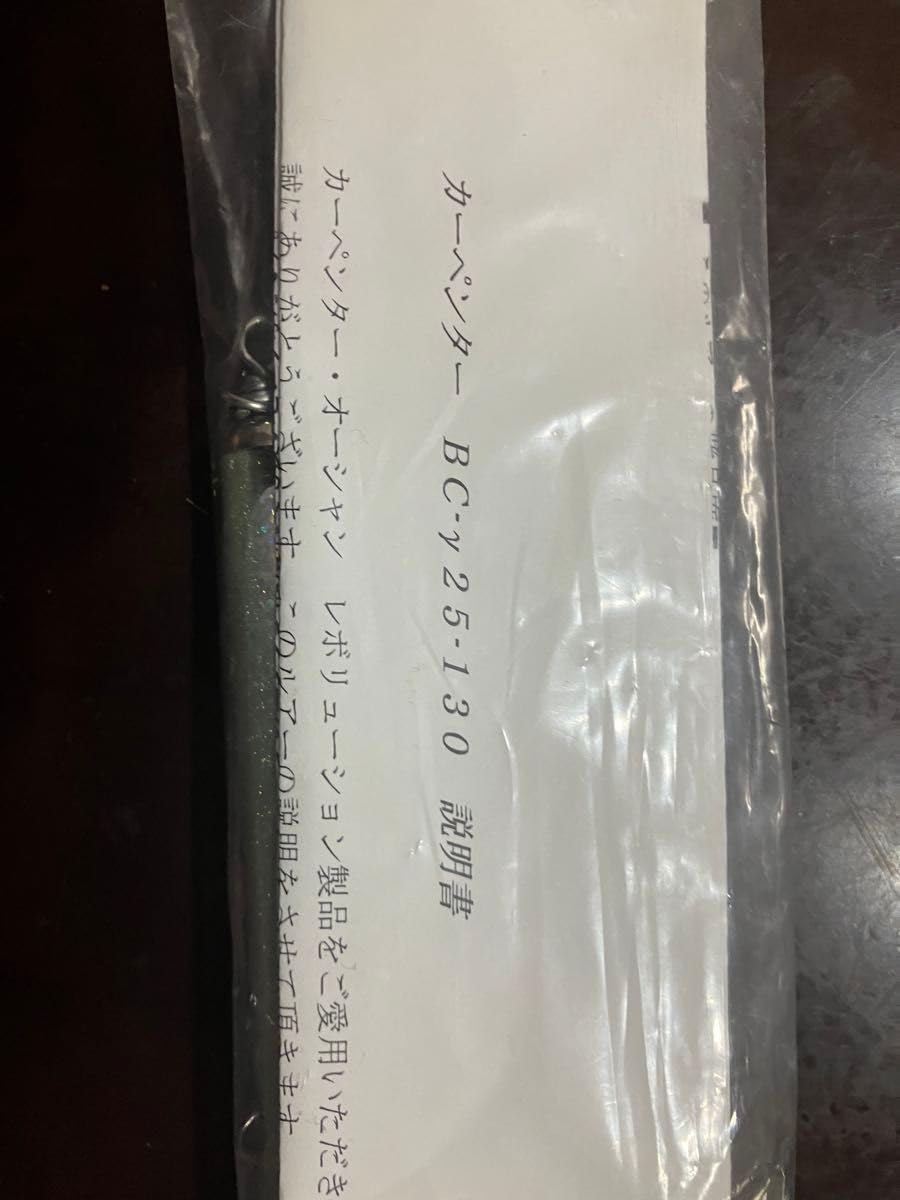 カーペンター BC-γ25-130 説明書
カーペンター・オーシャン レボリューション製品をご愛用いただき
誠にありがとうございます このルアーの説明をさせて頂きます